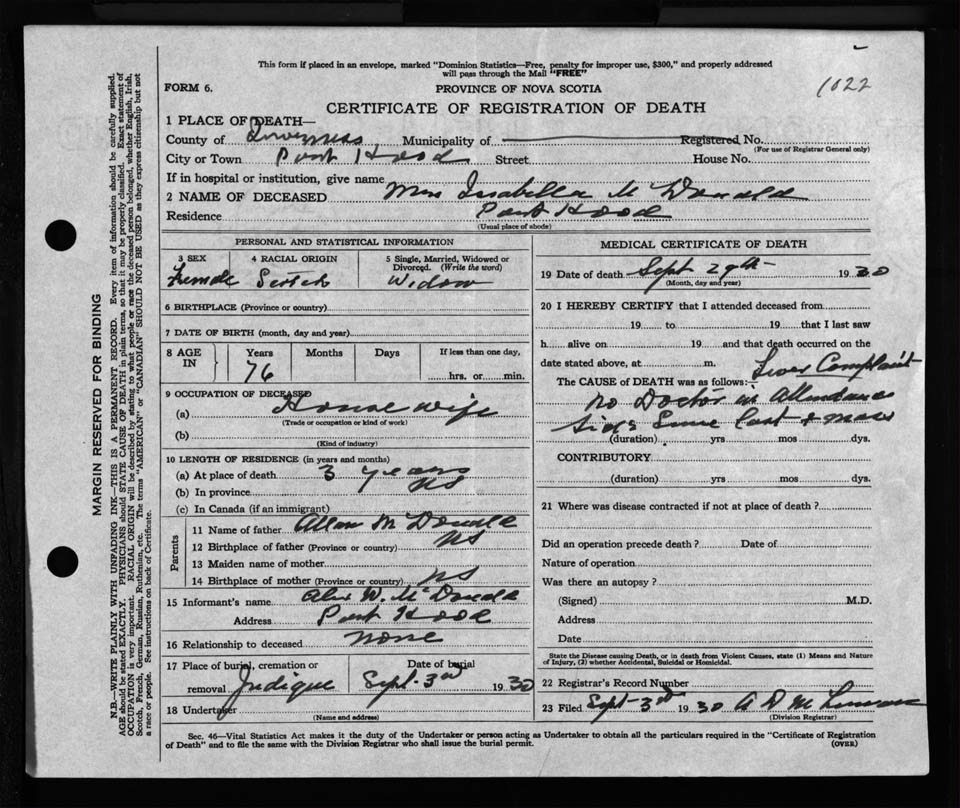 This form if placed in an envelope, marked "Dominion Statistics—Free, penalty for improper use, $300," and properly addressed
will pass through the Mail "FREE"
1022
FORM 6.
PROVINCE OF NOVA SCOTIA
CERTIFICATE OF REGISTRATION OF DEATH
1 PLACE OF DEATH—
County of Inverness Municipality of Registered No.
(For use of Registrar General only)
City or Town Port Hood Street House No.
If in hospital or institution, give name
2 NAME OF DECEASED Mrs Isabella McDonald
Residence Port Hood
(Usual place of abode)
PERSONAL AND STATISTICAL INFORMATION
3 SEX 4 RACIAL ORIGIN 5 Single, Married, Widowed or
Divorced. (Write the word)
Female Scotch Widow
6 BIRTHPLACE (Province or country)
7 DATE OF BIRTH (month, day and year)
8 AGE IN Years Months Days If less than one day,
76 hrs. or min.
9 OCCUPATION OF DECEASED
(a) House wife
(Trade or occupation or kind of work)
(b)
(Kind of industry)
10 LENGTH OF RESIDENCE (in years and months)
(a) At place of death 3 years
(b) In province NS
(c) In Canada (if an immigrant)
Parents
11 Name of father Allan McDonald
12 Birthplace of father (Province or country) NS
13 Maiden name of mother
14 Birthplace of mother (Province or country) NS
15 Informant's name Alex W. McDonald
Address Port Hood
16 Relationship to deceased none
17 Place of burial, cremation or Date of burial
removal Judique Sept. 3rd 1930
18 Undertaker
(Name and address)
MEDICAL CERTIFICATE OF DEATH
19 Date of death Sept 29th 1930
(Month, day and year)
20 I HEREBY CERTIFY that I attended deceased from
19 to 19 that I last saw
h alive on 19 and that death occurred on the
date stated above, at m.
Liver Complaint
The CAUSE of DEATH was as follows:
no Doctor in Attendance
Since last
(duration) yrs mos dys.
CONTRIBUTORY
(duration) yrs mos dys.
21 Where was disease contracted if not at place of death?
Did an operation precede death? Date of
Nature of operation
Was there an autopsy?
(Signed) M.D.
Address
Date
State the Disease causing Death, or in death from Violent Causes, state (1) Means and Nature
of Injury, (2) whether Accidental, Suicidal or Homicidal.
22 Registrar's Record Number
23 Filed Sept 3rd 1930 A D
(Division Registrar)
Sec. 46—Vital Statistics Act makes it the duty of the Undertaker or person acting as Undertaker to obtain all the particulars required in the "Certificate of Registration
of Death" and to file the same with the Division Registrar who shall issue the burial permit. (OVER)
MARGIN RESERVED FOR BINDING
N.B.—WRITE PLAINLY WITH UNFADING INK—THIS IS A PERMANENT RECORD. Every item of information should be carefully supplied.
AGE should be stated EXACTLY. PHYSICIANS should STATE CAUSE OF DEATH in plain terms, so that it may be properly classified. Exact statement of
OCCUPATION is very important. RACIAL ORIGIN will be described by stating to what people or race the deceased person belonged, whether English, Irish,
Scotch, French, German, Russian, Ruthenian, etc. The terms "AMERICAN" or "CANADIAN" SHOULD NOT BE USED as they express citizenship but not
a race or people. See instructions on back of Certificate.